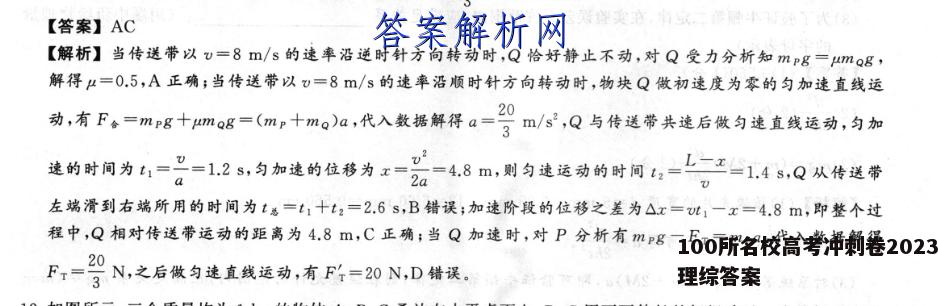 【答案】AC
答案解析网
【解析】当传送带以 v=8 m/s 的速率沿逆时针方向转动时,Q 恰好静止不动,对 Q 受力分析知 mPg=μmQg,
解得 μ=0.5,A 正确;当传送带以 v=8 m/s 的速率沿顺时针方向转动时,物块 Q 做初速度为零的匀加速直线运
动,有 F合=mPg+μmQg=(mP+mQ)a,代入数据解得 a=20/3 m/s²,Q 与传送带共速后做匀速直线运动,匀加
速的时间为 t₁=v/a=1.2 s,匀加速的位移为 x=v²/2a=4.8 m,则匀速运动的时间 t₂=(L-x)/v=1.4 s,Q 从传送带
左端滑到右端所用的时间为 t总=t₁+t₂=2.6 s,B 错误;加速阶段的位移之差为 Δx=vt₁-x=4.8 m,即整个过
程中,Q 相对传送带运动的距离为 4.8 m,C 正确;当 Q 加速时,对 P 分析有 mPg-FT=mPa,代入数据解得
100所名校高考冲刺卷2023
FT=20/3 N,之后做匀速直线运动,有 F′T=20 N,D 错误。
理综答案